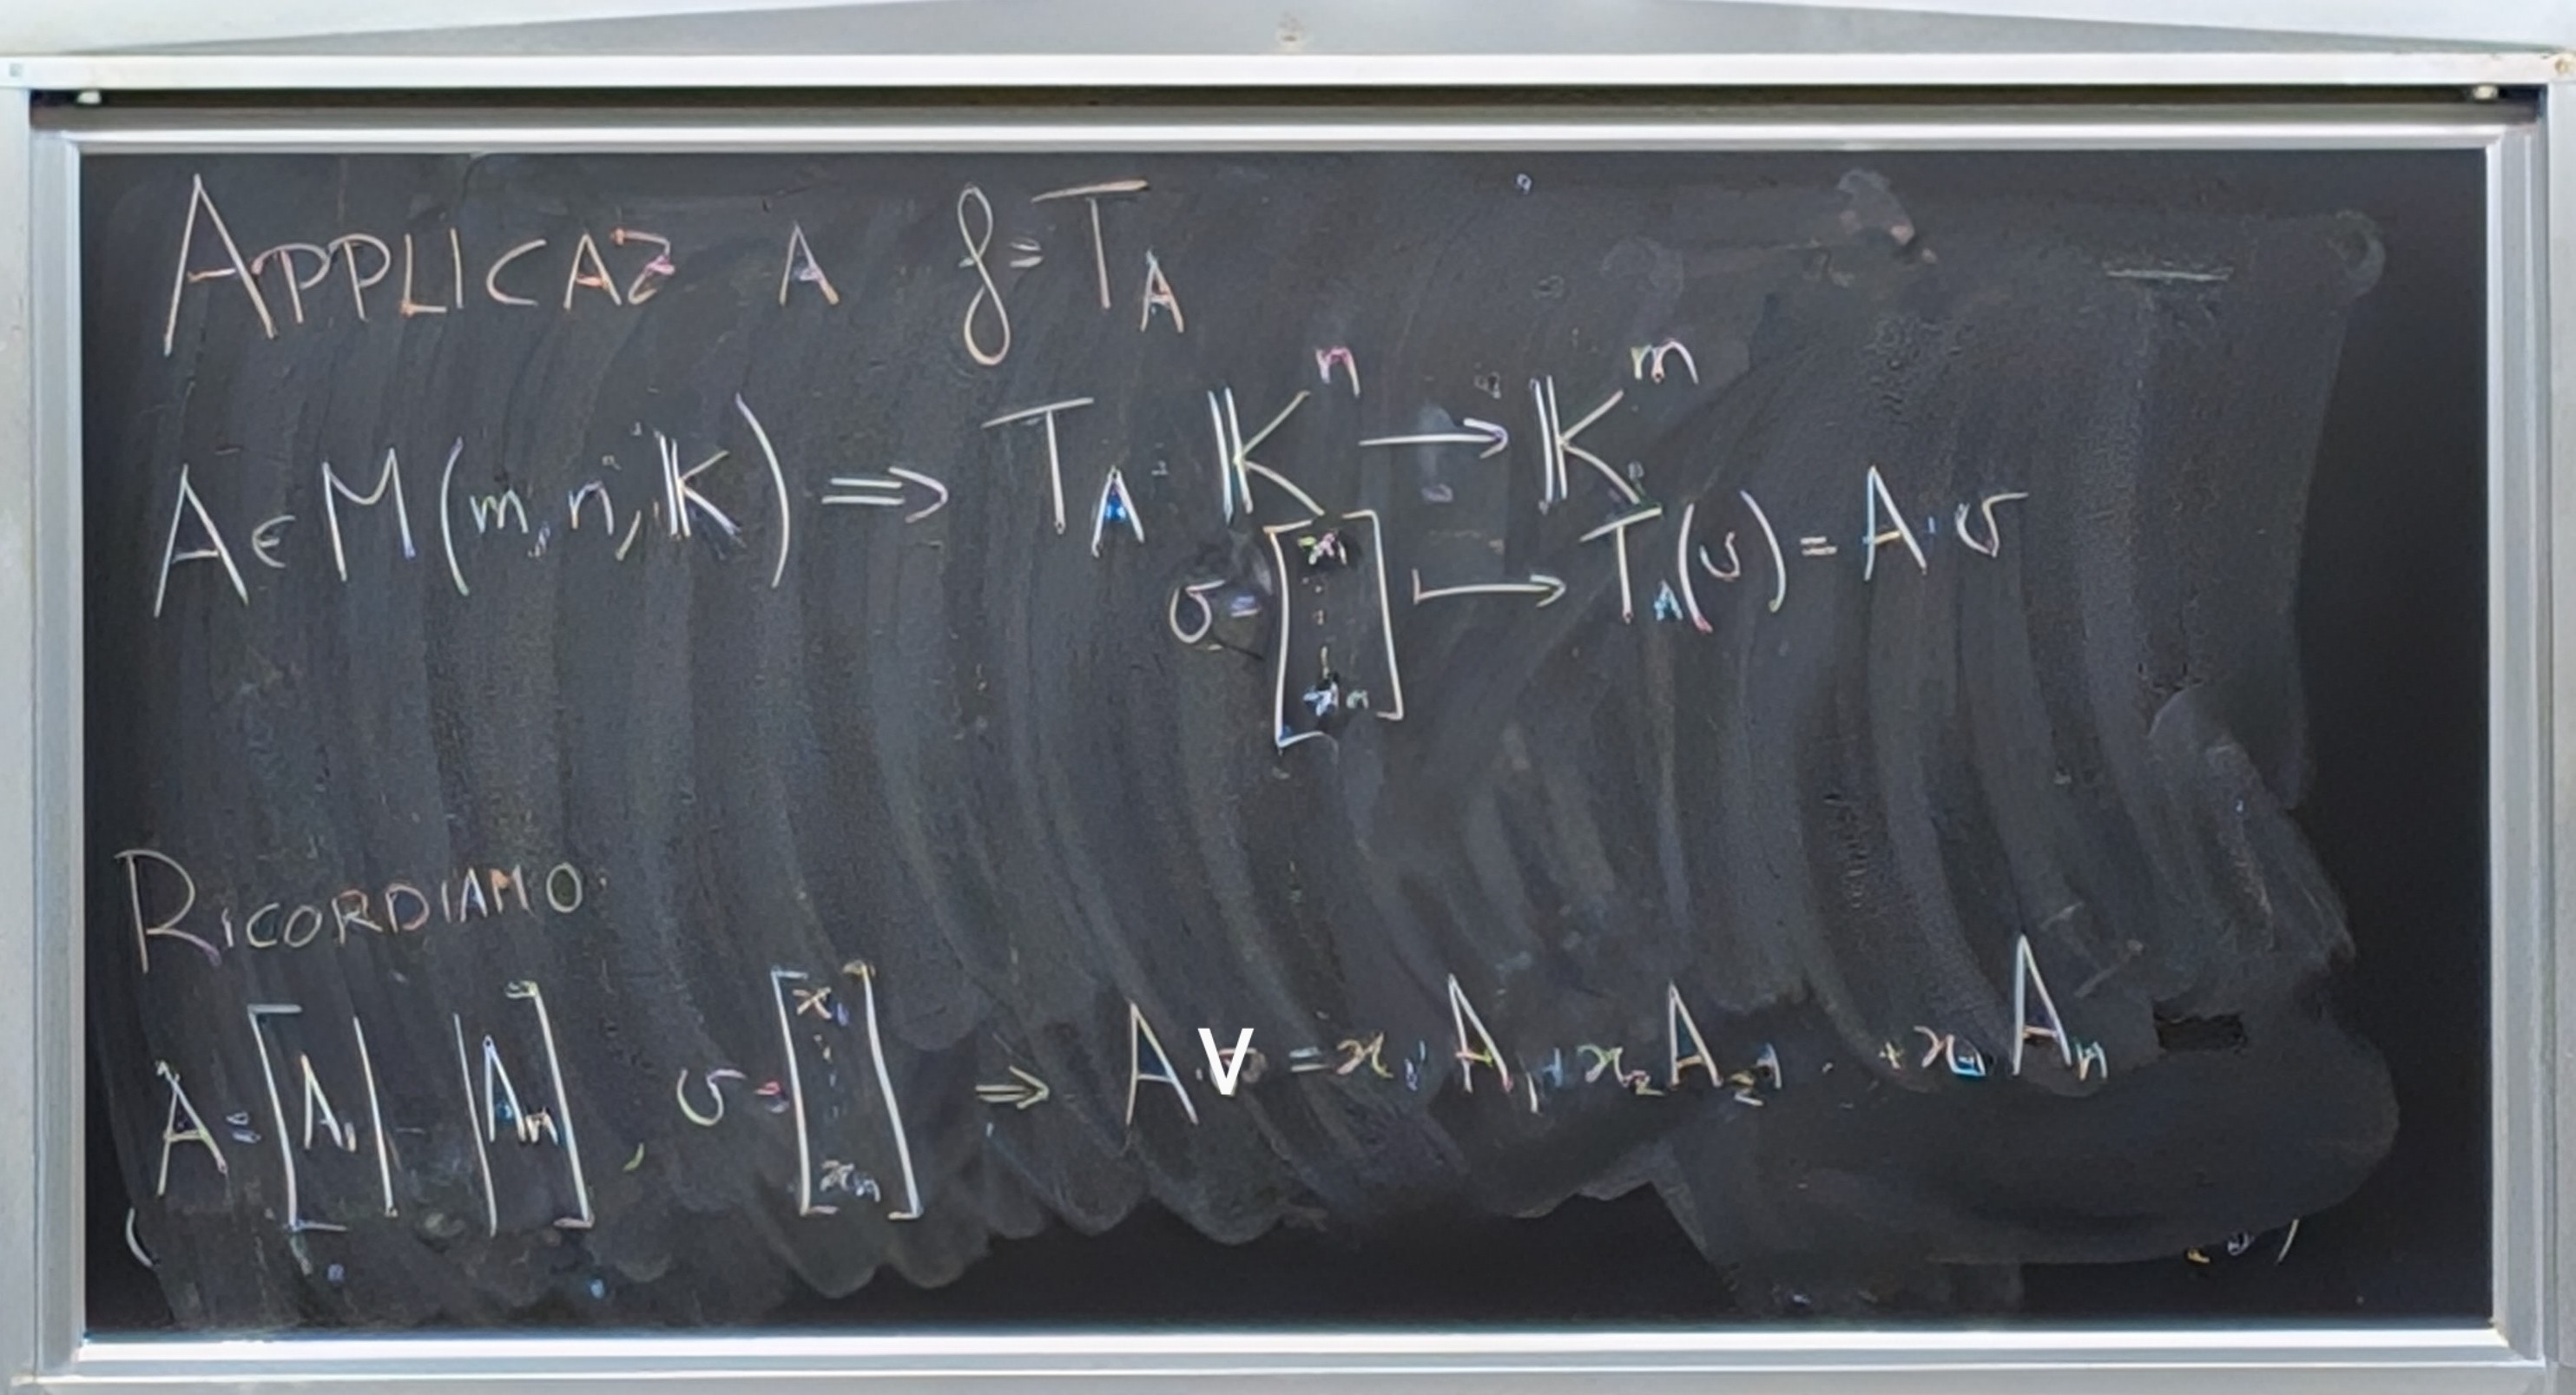 APPLICAZ A f = T_A
A ∈ M(m, n, K) ⇒ T_A : K^n → K^m
v = [x_1 ⋮ x_n] ⟼ T_A(v) = A · v
RICORDIAMO
A = [A_1 | - | A_n] , v = [x_1 ⋮ x_n] ⇒ A · v = x_1 A_1 + x_2 A_2 + . . . + x_n A_n